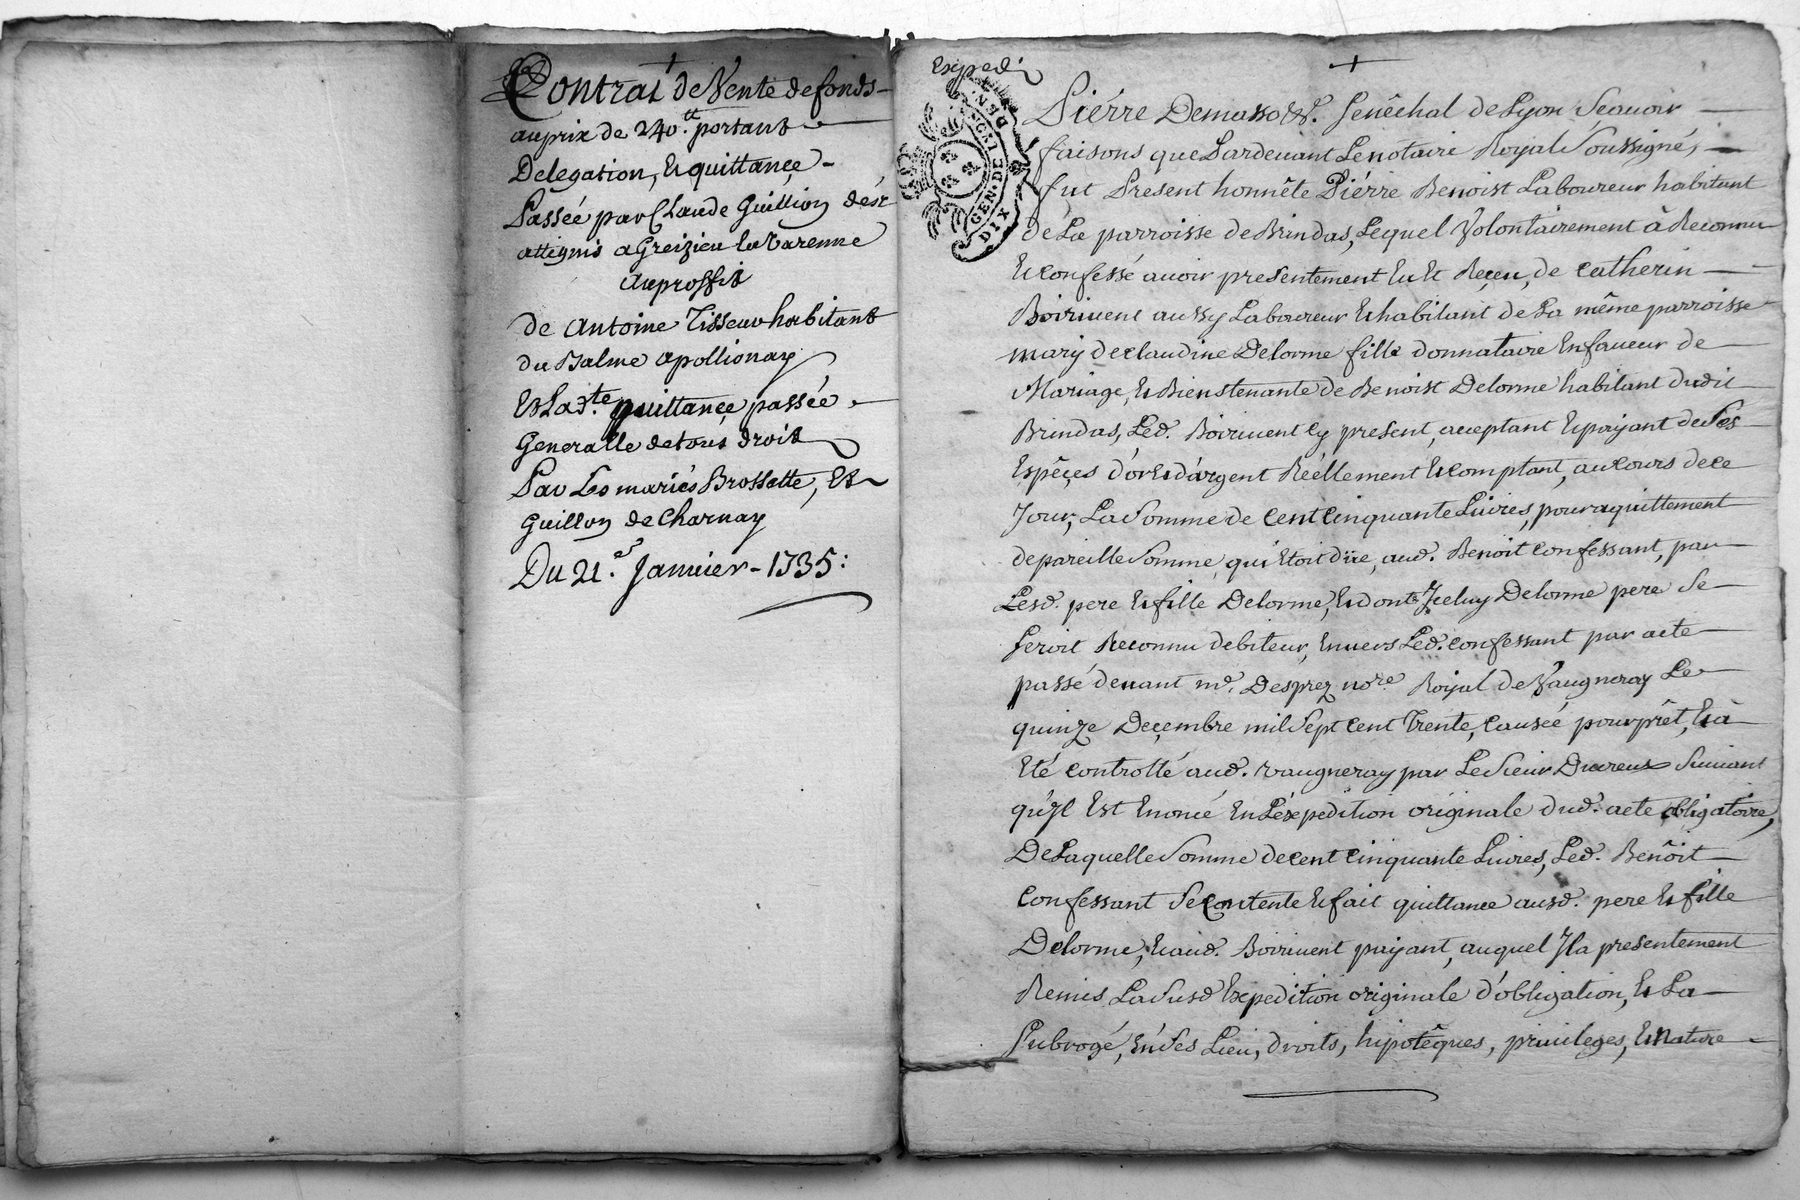 Contrat de Vente de fonds
au prix de 240.tt portant
Delegation, et quittançe
Passée par Claude Guillion
attignis a Greizieu la Varenne
au proffit
de Antoine Tisseur habitant
du Balme apollionay
Et la d.te quittançe passée
Generalle de tous droit
Par Les mariés Brossette, Et
Guillon de Charnay
Du 21.e Janvier - 1735:
Exped.
GEN. DE
DIX
DEN.
Piérre Demasso &. Senêchal de Lyon Scavoir
faisons que Pardevant Le notaire Royal Soussigné,
fut Present honnête Piérre Benoist Laboureur habitant
de La parroisse de Brindas, Lequel Volontairement à Reconnu
Et confessé avoir presentement Eu Et Reçeu, de Catherin
Boirivent aussy Laboureur Et habitant de La même parroisse
mary de claudine Delorme fille donnataire En faveur de
Mariage, Et Bienstenante de Benoist Delorme habitant dudit
Brindas, Led. Boirivent Cy present, acceptant Et payant de Ses
Espêçes d'or Et d'argent Réellement Et comptant, au cours de ce
Jour, La Somme de Cent Cinquante Livres, pour aquittement
de pareille Somme, qui Etoit düe, aud. Benoit confessant, par
Lesd. pere Et fille Delorme, Et dont Jceluy Delorme pere Se
Seroit Reconnu debiteur, Envers Led. confessant par acte
passé devant me. Desprez no.re Royal de Vaugneray Le
quinze Deçembre mil Sept Cent Trente, Causée pour prêt, Et à
Eté Controllé aud. Vaugneray par Le Sieur Suivant
qu'Jl Est Enoncé En L'éxpedition originale dud. acte obligatoire,
De Laquelle Somme de Cent Cinquante Livres, Led. Benôit
Confessant Se Contente Et fait quittance ausd. pere Et fille
Delorme, Et aud. Boirivent payant, auquel Jl a presentement
Remis La Susd Expedition originale d'obligation, Et La
Subrogé, En Ses Lieu, droits, hipotêques, privileges, Et Nature